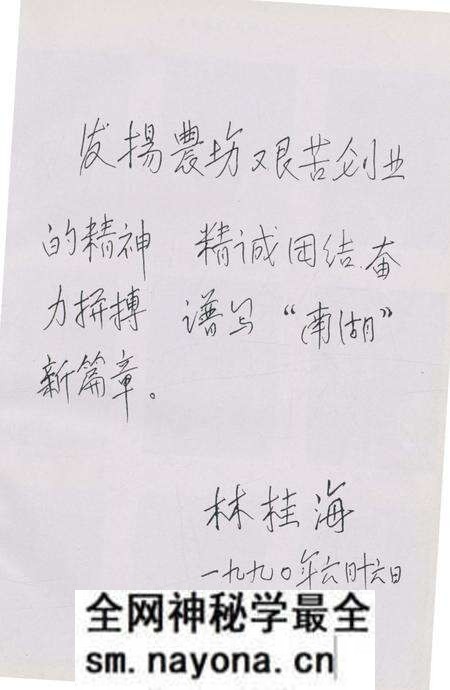 发揚農场艰苦创业
的精神 精诚团结奋
力拼搏 谱写“南湖”
新篇章。
林桂海
一九九〇年六月十六日
全网神秘学最全
sm.nayona.cn